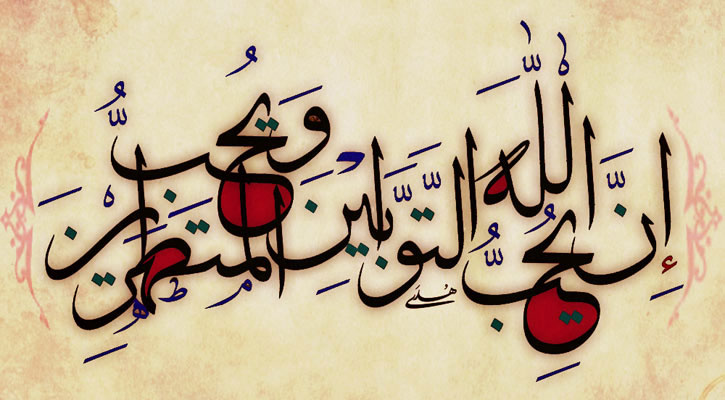 إِنَّ اللَّهَ يُحِبُّ التَّوَّابِينَ وَيُحِبُّ الْمُتَطَهِّرِينَ